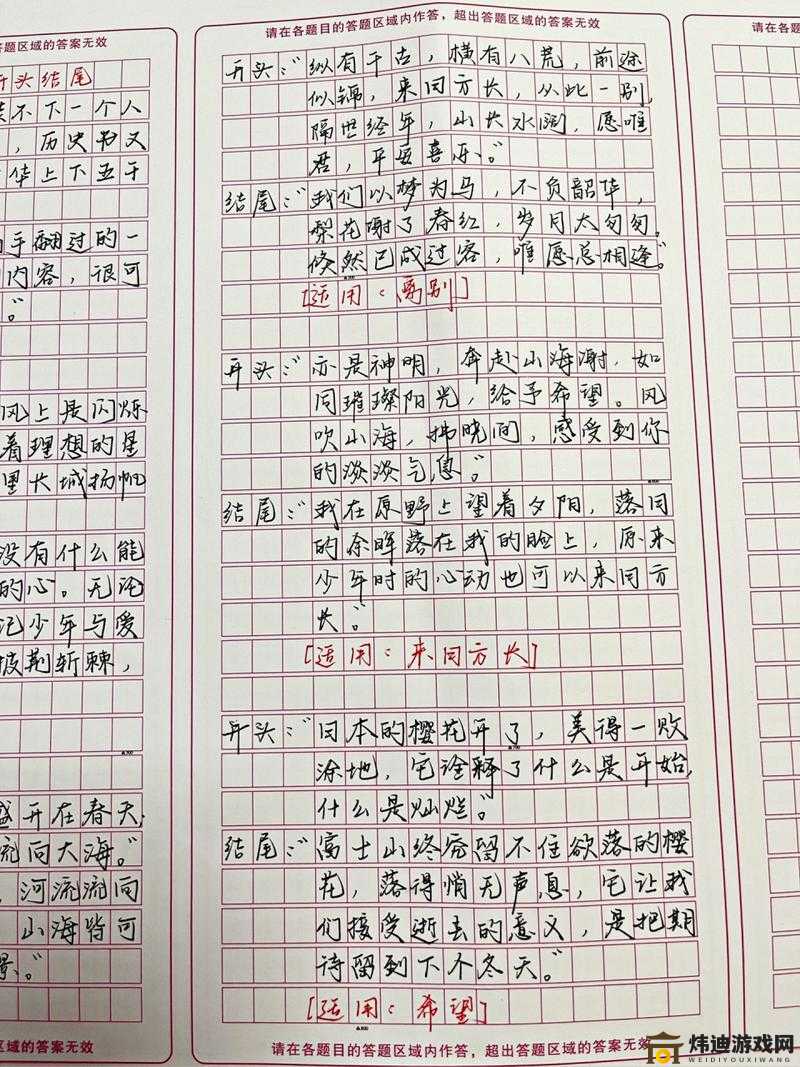 答题区域的答案无效
开头结尾
装不下一个人
，历史书又
华上下五千
手翻过的一
内容，很可
。”
风上是闪烁
着理想的星
里长城扬帆
没有什么能
的心。无论
记少年与爱
披荆斩棘，
盛开在春天，
流向大海。”
，河流流向
山海皆可
景。”
区域的答案无效
请在各题目的答题区域内作答，超出答题区域的答案无效
开头：“纵有千古，横有八荒，前途
似锦，来日方长，从此一别，
隔世经年，山长水阔，愿唯
君，平安喜乐。”
结尾：“我们以梦为马，不负韶华，
梨花谢了春红，岁月太匆匆，
倏然已成过客，唯愿总相逢。”
[适用：离别]
开头：“亦是神明，奔赴山海谢，如
同璀璨阳光，给予希望。风
吹山海，拂晓间，感受到你
的淡淡气息。”
结尾：“我在原野上望着夕阳，落日
的余晖落在我的脸上，原来
少年时的心动也可以来日方
长。”
[适用：来日方长]
开头：“日本的樱花开了，美得一败
涂地，它诠释了什么是开始，
什么是灿烂。”
结尾：“富士山终究留不住欲落的樱
花，落得悄无声息，它让我
们接受逝去的意义，是把期
待留到下个冬天。”
[适用：希望]
请在各题目的答题区域内作答，超出答题区域的答案无效
请在各题
请在各题
炜迪游戏网
WEIDIYOUXIWANG